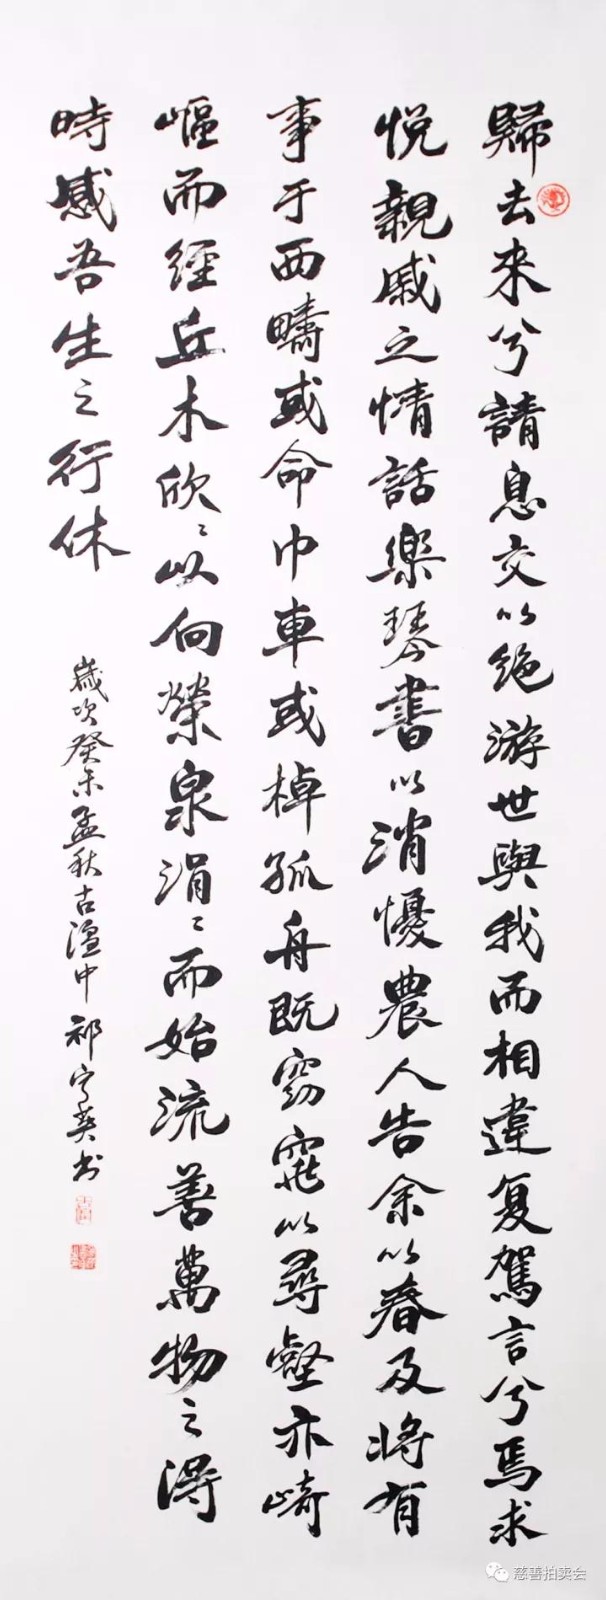 歸去來兮請息交以絕游世與我而相違复駕言兮焉求
悅親戚之情話樂琴書以消憂農人告余以春及將有
事于西疇或命巾車或棹孤舟既窈窕以尋壑亦崎
嶇而經丘木欣〻以向榮泉涓〻而始流善萬物之得
時感吾生之行休
歲次癸未孟秋古湟中祁宁英书
慈善拍卖会